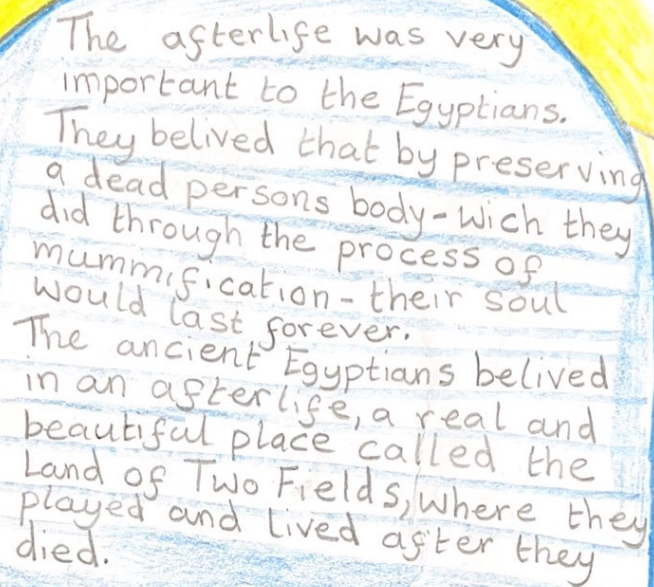 The afterlife was very
important to the Egyptians.
They belived that by preserving
a dead persons body-wich they
did through the process of
mummification- their soul
would last forever.
The ancient Egyptians belived
in an afterlife, a real and
beautiful place called the
Land of Two Fields, where they
played and lived after they
died.